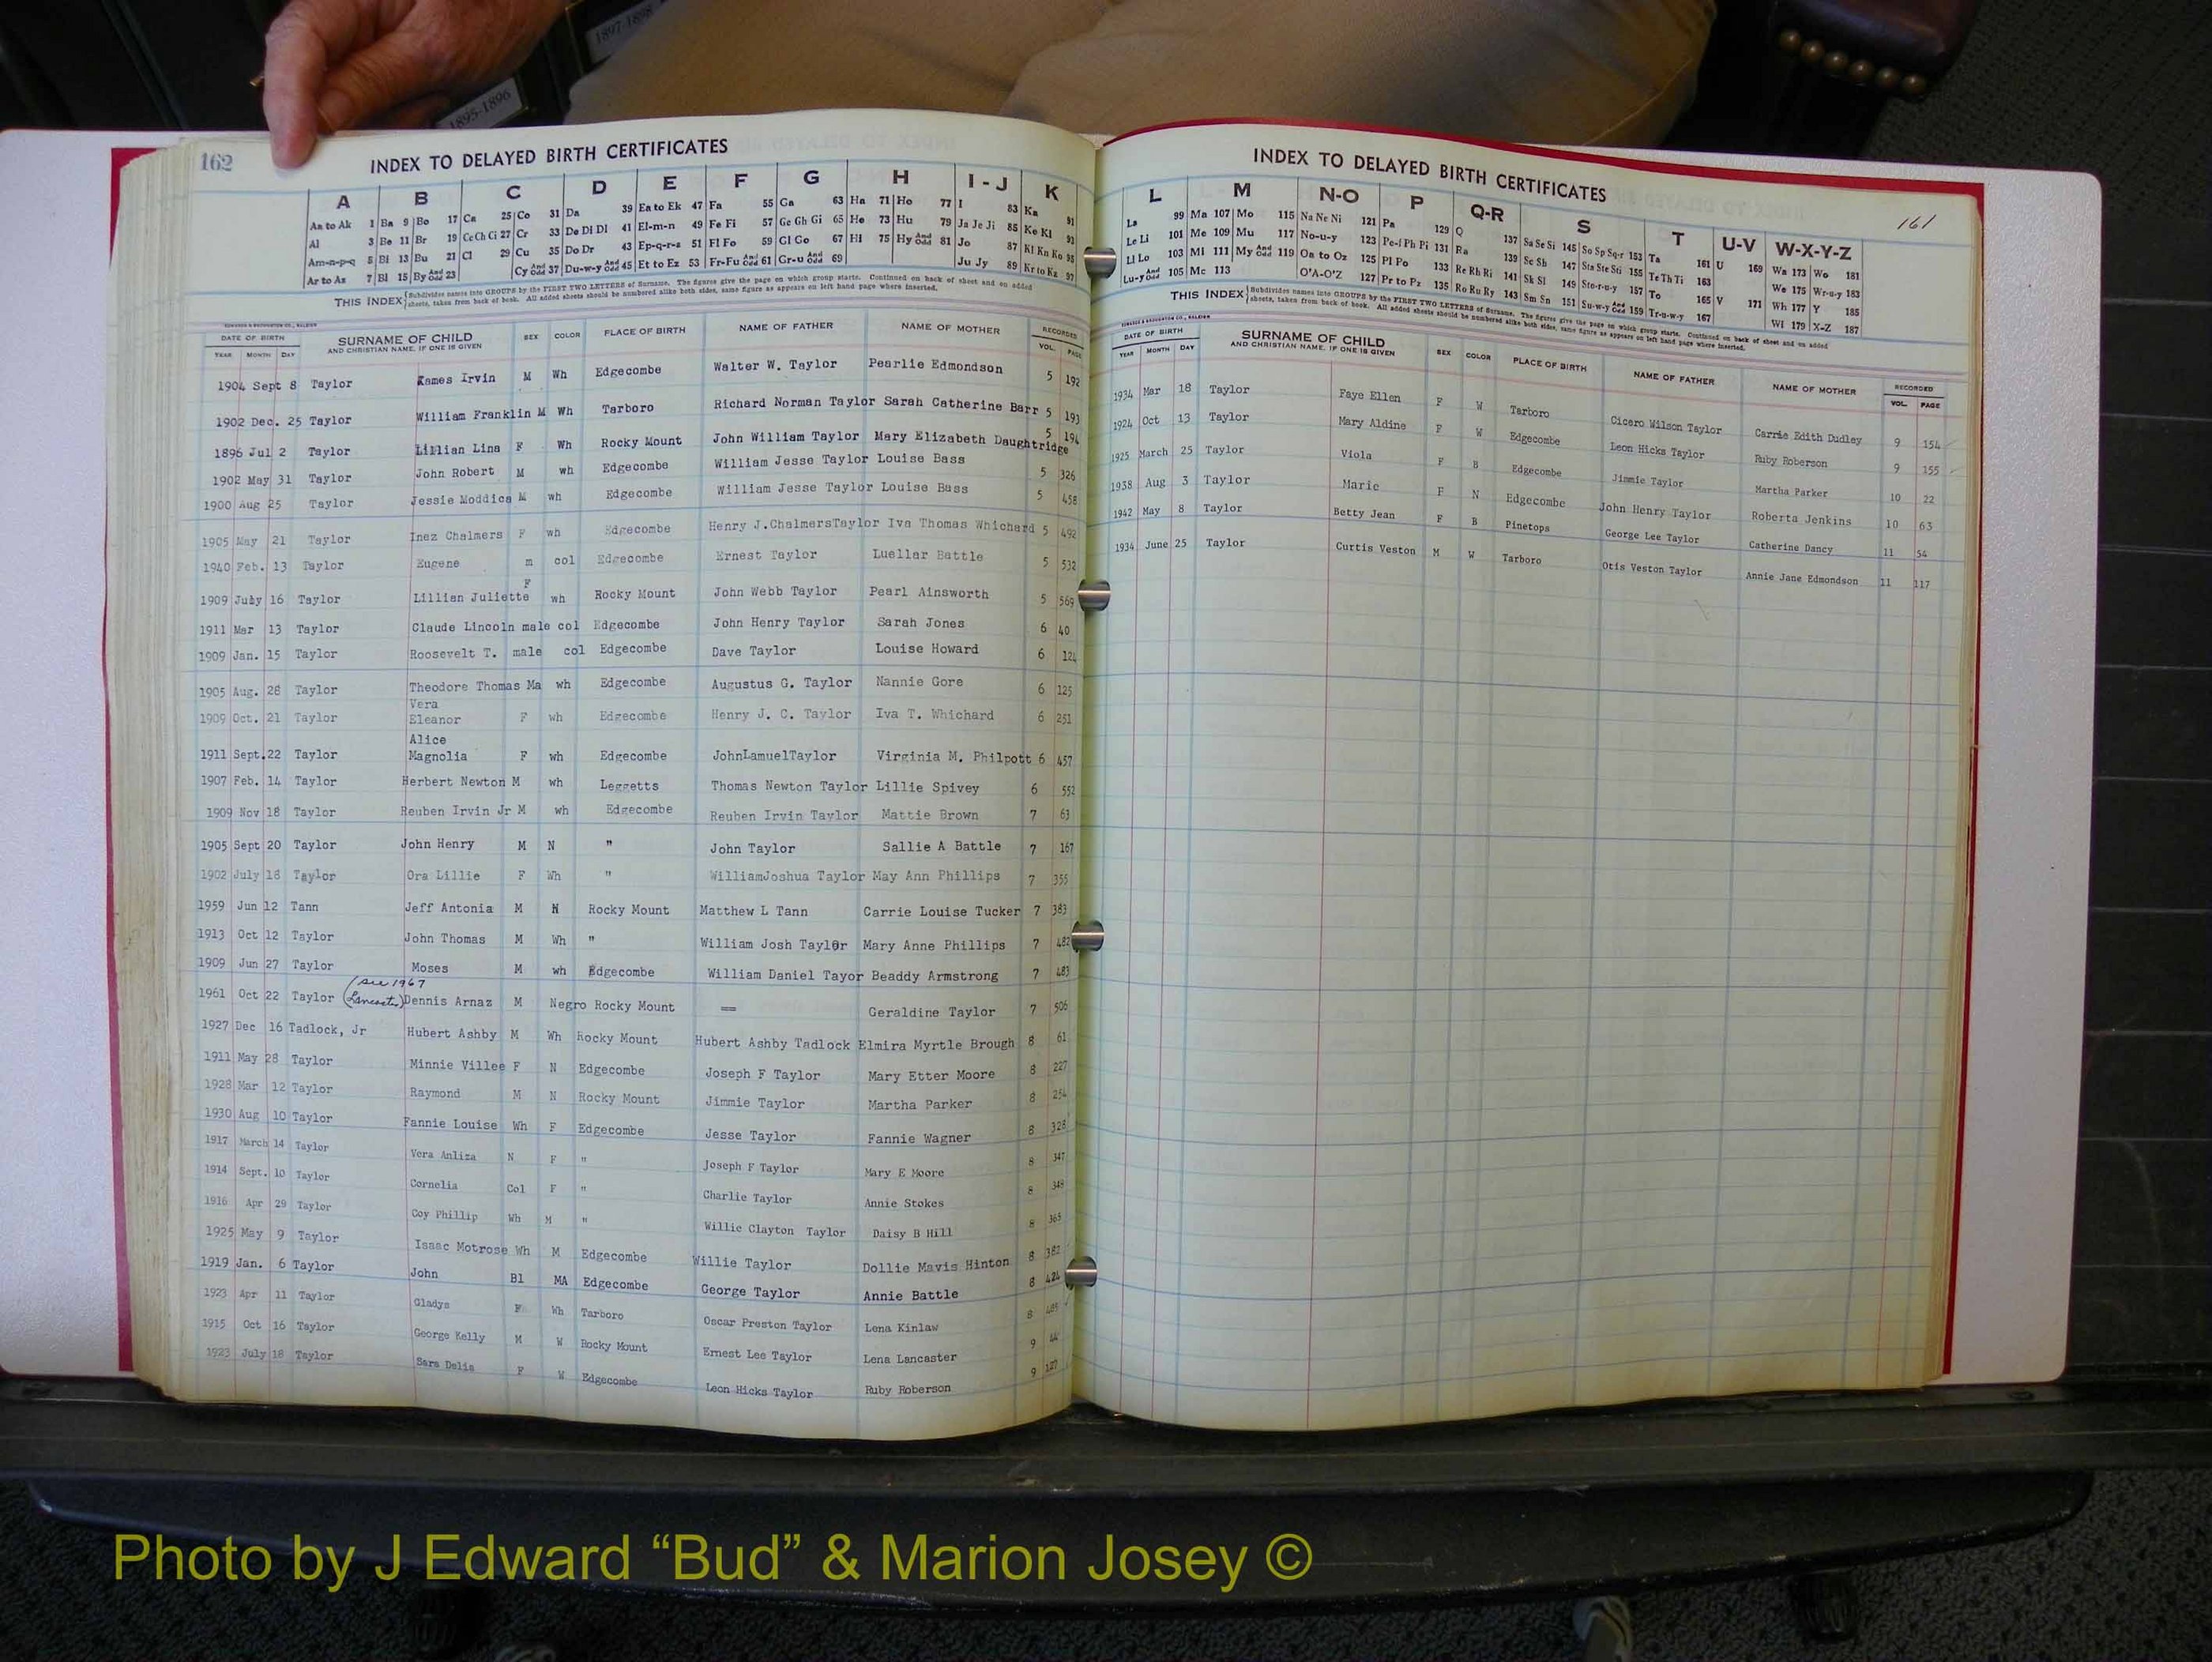 1897-1898
1895-1896
162
INDEX TO DELAYED BIRTH CERTIFICATES
A B C D E F G H I - J K
Aa to Ak 1 Ba 9 Bo 17 Ca 25 Co 31 Da 39 Ea to Ek 47 Fa 55 Ga 63 Ha 71 Ho 77 I 83 Ka 91
Al 3 Be 11 Br 19 Ce Ch Ci 27 Cr 33 De Di Dl 41 El-m-n 49 Fe Fi 57 Ge Gh Gi 65 He 73 Hu 79 Ja Je Ji 85 Ke Kl 93
Am-n-p-q 5 Bi 13 Bu 21 Cl 29 Cu 35 Do Dr 43 Ep-q-r-s 51 Fl Fo 59 Gl Go 67 Hi 75 Hy And Odd 81 Jo 87 Kl Kn Ko 95
Ar to Az 7 Bl 15 By And Odd 23 Cy And Odd 37 Du-w-y And Odd 45 Et to Ez 53 Fr-Fu And Odd 61 Gr-u And Odd 69 Ju Jy 89 Kr to Kz 97
THIS INDEX Subdivides names into GROUPS by the FIRST TWO LETTERS of Surname. The figures give the page on which group starts. Continued on back of sheet and on added
sheets, taken from back of book. All added sheets should be numbered alike both sides, same figure as appears on left hand page where inserted.
EDWARDS & BROUGHTON CO., RALEIGH
DATE OF BIRTH SURNAME OF CHILD SEX COLOR PLACE OF BIRTH NAME OF FATHER NAME OF MOTHER RECORDED
YEAR MONTH DAY AND CHRISTIAN NAME, IF ONE IS GIVEN VOL. PAGE
1904 Sept 8 Taylor Kames Irvin M Wh Edgecombe Walter W. Taylor Pearlie Edmondson 5 192
1902 Dec. 25 Taylor William Franklin M Wh Tarboro Richard Norman Taylor Sarah Catherine Barr 5 193
1896 Jul 2 Taylor Lillian Lina F Wh Rocky Mount John William Taylor Mary Elizabeth Daughtridge 5 194
1902 May 31 Taylor John Robert M wh Edgecombe William Jesse Taylor Louise Bass 5 326
1900 Aug 25 Taylor Jessie Moddica M wh Edgecombe William Jesse Taylor Louise Bass 5 458
1905 May 21 Taylor Inez Chalmers F wh Edgecombe Henry J.ChalmersTaylor Iva Thomas Whichard 5 492
1940 Feb. 13 Taylor Eugene m col Edgecombe Ernest Taylor Luellar Battle 5 532
1909 July 16 Taylor Lillian Juliette F wh Rocky Mount John Webb Taylor Pearl Ainsworth 5 569
1911 Mar 13 Taylor Claude Lincoln male col Edgecombe John Henry Taylor Sarah Jones 6 40
1909 Jan. 15 Taylor Roosevelt T. male col Edgecombe Dave Taylor Louise Howard 6 124
1905 Aug. 28 Taylor Theodore Thomas Ma wh Edgecombe Augustus G. Taylor Nannie Gore 6 125
Vera
1909 Oct. 21 Taylor Eleanor F wh Edgecombe Henry J. C. Taylor Iva T. Whichard 6 251
Alice
1911 Sept.22 Taylor Magnolia F wh Edgecombe JohnLamuelTaylor Virginia M. Philpott 6 457
1907 Feb. 14 Taylor Herbert Newton M wh Leggetts Thomas Newton Taylor Lillie Spivey 6 552
1909 Nov 18 Taylor Reuben Irvin Jr M wh Edgecombe Reuben Irvin Taylor Mattie Brown 7 63
1905 Sept 20 Taylor John Henry M N " John Taylor Sallie A Battle 7 167
1902 July 18 Taylor Ora Lillie F Wh " WilliamJoshua Taylor May Ann Phillips 7 355
1959 Jun 12 Tann Jeff Antonia M N Rocky Mount Matthew L Tann Carrie Louise Tucker 7 383
1913 Oct 12 Taylor John Thomas M Wh " William Josh Taylor Mary Anne Phillips 7 482
1909 Jun 27 Taylor Moses M wh Edgecombe William Daniel Tayor Beaddy Armstrong 7 483
(see 1967
1961 Oct 22 Taylor Lancaster) Dennis Arnaz M Negro Rocky Mount == Geraldine Taylor 7 506
1927 Dec 16 Tadlock, Jr Hubert Ashby M Wh Rocky Mount Hubert Ashby Tadlock Elmira Myrtle Brough 8 61
1911 May 28 Taylor Minnie Villee F N Edgecombe Joseph F Taylor Mary Etter Moore 8 227
1928 Mar 12 Taylor Raymond M N Rocky Mount Jimmie Taylor Martha Parker 8 254
1930 Aug 10 Taylor Fannie Louise Wh F Edgecombe Jesse Taylor Fannie Wagner 8 328
1917 March 14 Taylor Vera Anliza N F " Joseph F Taylor Mary E Moore 8 347
1914 Sept. 10 Taylor Cornelia Col F " Charlie Taylor Annie Stokes 8 348
1916 Apr 29 Taylor Coy Phillip Wh M " Willie Clayton Taylor Daisy B Hill 8 365
1925 May 9 Taylor Isaac Motrose Wh M Edgecombe Willie Taylor Dollie Mavis Hinton 8 382
1919 Jan. 6 Taylor John Bl MA Edgecombe George Taylor Annie Battle 8 424
1923 Apr 11 Taylor Gladys F Wh Tarboro Oscar Preston Taylor Lena Kinlaw 8
1915 Oct 16 Taylor George Kelly M W Rocky Mount Ernest Lee Taylor Lena Lancaster 9 44
1923 July 18 Taylor Sara Delia F W Edgecombe Leon Hicks Taylor Ruby Roberson 9 127
INDEX TO DELAYED BIRTH CERTIFICATES
161
L M N-O P Q-R S T U-V W-X-Y-Z
La 99 Ma 107 Mo 115 Na Ne Ni 121 Pa 129 Q 137 Sa Se Si 145 So Sp Sq-r 153 Ta 161 U 169 Wa 173 Wo 181
Le Li 101 Me 109 Mu 117 No-u-y 123 Pe-f Ph Pi 131 Ra 139 Sc Sh 147 Sta Ste Sti 155 Te Th Ti 163 We 175 Wr-u-y 183
Ll Lo 103 Mi 111 My And Odd 119 Oa to Oz 125 Pl Po 133 Re Rh Ri 141 Sk Sl 149 Sto-r-u-y 157 To 165 V 171 Wh 177 Y 185
Lu-y And Odd 105 Mc 113 O'A-O'Z 127 Pr to Pz 135 Ro Ru Ry 143 Sm Sn 151 Su-w-y And Odd 159 Tr-u-w-y 167 Wi 179 X-Z 187
THIS INDEX Subdivides names into GROUPS by the FIRST TWO LETTERS of Surname. The figures give the page on which group starts. Continued on back of sheet and on added
sheets, taken from back of book. All added sheets should be numbered alike both sides, same figure as appears on left hand page where inserted.
EDWARDS & BROUGHTON CO., RALEIGH
DATE OF BIRTH SURNAME OF CHILD SEX COLOR PLACE OF BIRTH NAME OF FATHER NAME OF MOTHER RECORDED
YEAR MONTH DAY AND CHRISTIAN NAME, IF ONE IS GIVEN VOL. PAGE
1934 Mar 18 Taylor Faye Ellen F W Tarboro Cicero Wilson Taylor Carrie Edith Dudley 9 154
1924 Oct 13 Taylor Mary Aldine F W Edgecombe Leon Hicks Taylor Ruby Roberson 9 155
1925 March 25 Taylor Viola F B Edgecombe Jimmie Taylor Martha Parker 10 22
1938 Aug 3 Taylor Marie F N Edgecombe John Henry Taylor Roberta Jenkins 10 63
1942 May 8 Taylor Betty Jean F B Pinetops George Lee Taylor Catherine Dancy 11 54
1934 June 25 Taylor Curtis Veston M W Tarboro Otis Veston Taylor Annie Jane Edmondson 11 117
Photo by J Edward “Bud” & Marion Josey ©